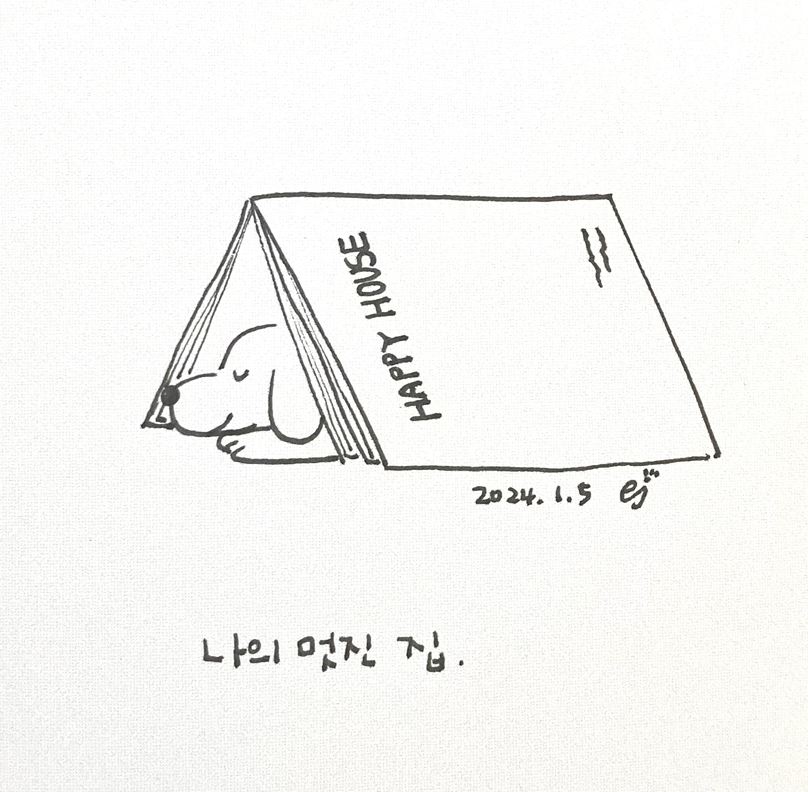 HAPPY HOUSE
2024.1.5 ej
나의 멋진 집.